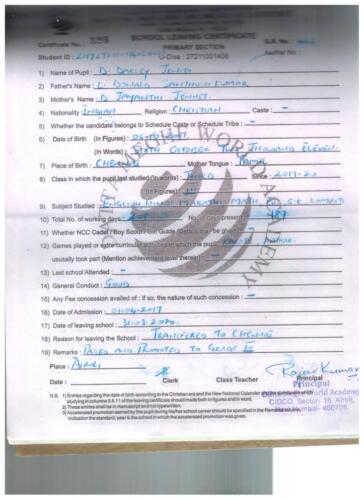 SCHOOL LEAVING CERTIFICATE
Certificate No. 335 PRIMARY SECTION G.R. No.
Student ID : U-Dise : 27211001408 Aadhar No.
1) Name of Pupil : D. Darley Jenish
2) Father's Name : L. Donald Santhosh Kumar
3) Mother's Name : D. Jayanthi Jennet
4) Nationality Indian Religion Christian Caste : –
5) Whether the candidate belongs to Schedule Caste or Schedule Tribe : –
6) Date of Birth (In Figures) :
(In Words) : October Two Thousand Eleven
7) Place of Birth : Chennai Mother Tongue : Tamil
8) Class in which the pupil last studied (In words) : Third Since : 2019-20
(In Figures) : III
9) Subject Studied : English Hindi Marathi Math
10) Total No. of working days : No. of days present :
11) Whether NCC Cadet / Boy Scout / Girl Guide (Details may be given) :
12) Games played or extra curricular activities in which the pupil
usually took part (Mention achievement level therein) : –
13) Last school Attended : –
14) General Conduct : Good
15) Any Fee concession availed of : If so, the nature of such concession : –
16) Date of Admission : 01-04-2017
17) Date of leaving school : 31-03-2020
18) Reason for leaving the School : Transferred to Chennai
19) Remarks : Passed and Promoted to Grade IV
Place : Airoli
Date : Clerk Class Teacher Principal
Principal
World Academy
CIDCO, Sector- 16, Airoli,
Mumbai- 400708.
N.B. 1) Entries regarding the date of birth according to the Christian era and the New National Calendar
studying in columns 8 & 11 of the leaving certificate should made both in figures and in word.
2) These entries shall be in manuscript and not typewritten.
3) Accelerated promotion earned by the pupil during his/her school career should be specified in the Remarks
indication the standard, year & the school in which the accelerated promotion was given.
WORLD ACADEMY